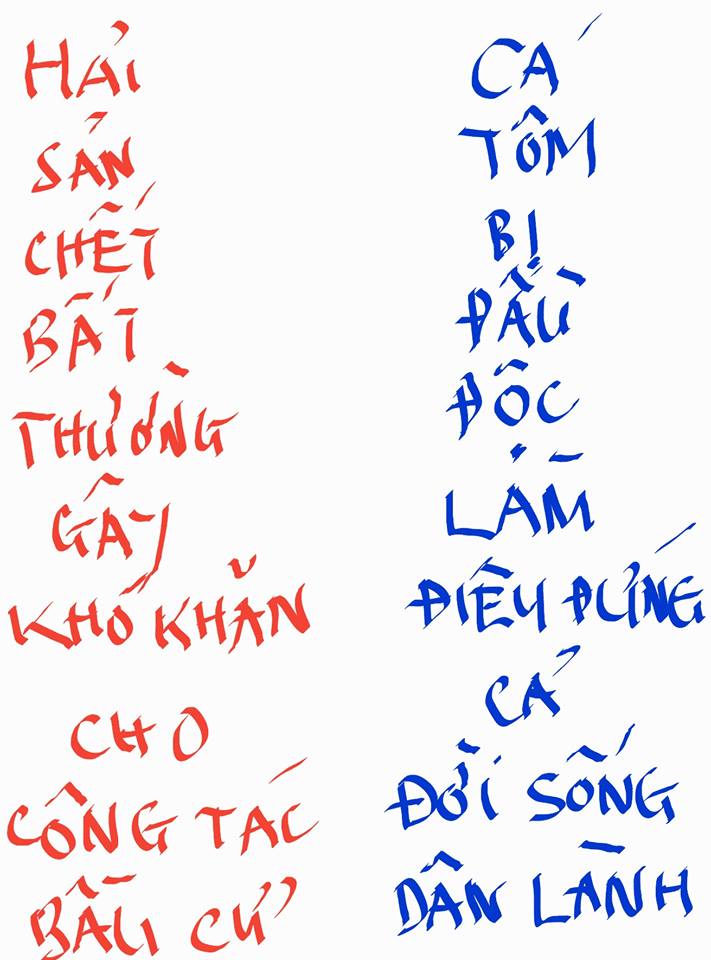 HẢI
SẢN
CHẾT
BẤT
THƯỜNG
GÂY
KHÓ KHĂN
CHO
CÔNG TÁC
BẦU CỬ
CÁ
TÔM
BỊ
ĐẦU
ĐỘC
LÀM
ĐIÊU ĐỨNG
CẢ
ĐỜI SỐNG
DÂN LÀNH